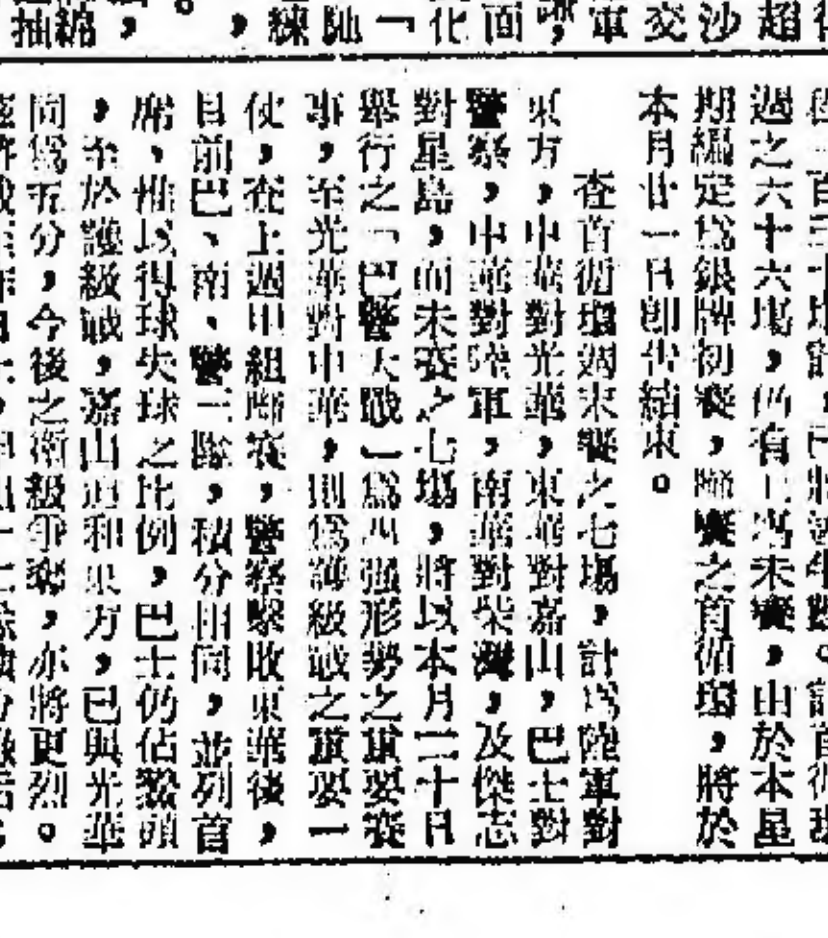 超
沙
交
軍
面
化
「
馳
練，
。
，
綿
抽
週之六十六塲，仍有七塲未賽，由於本星
期編定爲銀牌初賽，聯賽之首循環，將於
本月廿一日卽告結束。
查首循環週末賽之七塲，計爲陸軍對
東方，中華對光華，東華對嘉山，巴士對
警察，中華對陸軍，南華對柴灣，及傑志
對星島，而未賽之七塲，將以本月二十日
舉行之「巴警大戰」爲四强形勢之重要賽
事，至光華對中華，則爲護級戰之重要一
仗，查上週甲組聯賽，警察擊敗東華後，
目前巴、南、警三隊，積分相同，並列首
席、推以得球失球之比例，巴士仍佔鰲頭
，至於護級戰，嘉山迫和東方，已與光華
同爲五分，今後之衛級爭鬥，亦將更烈。